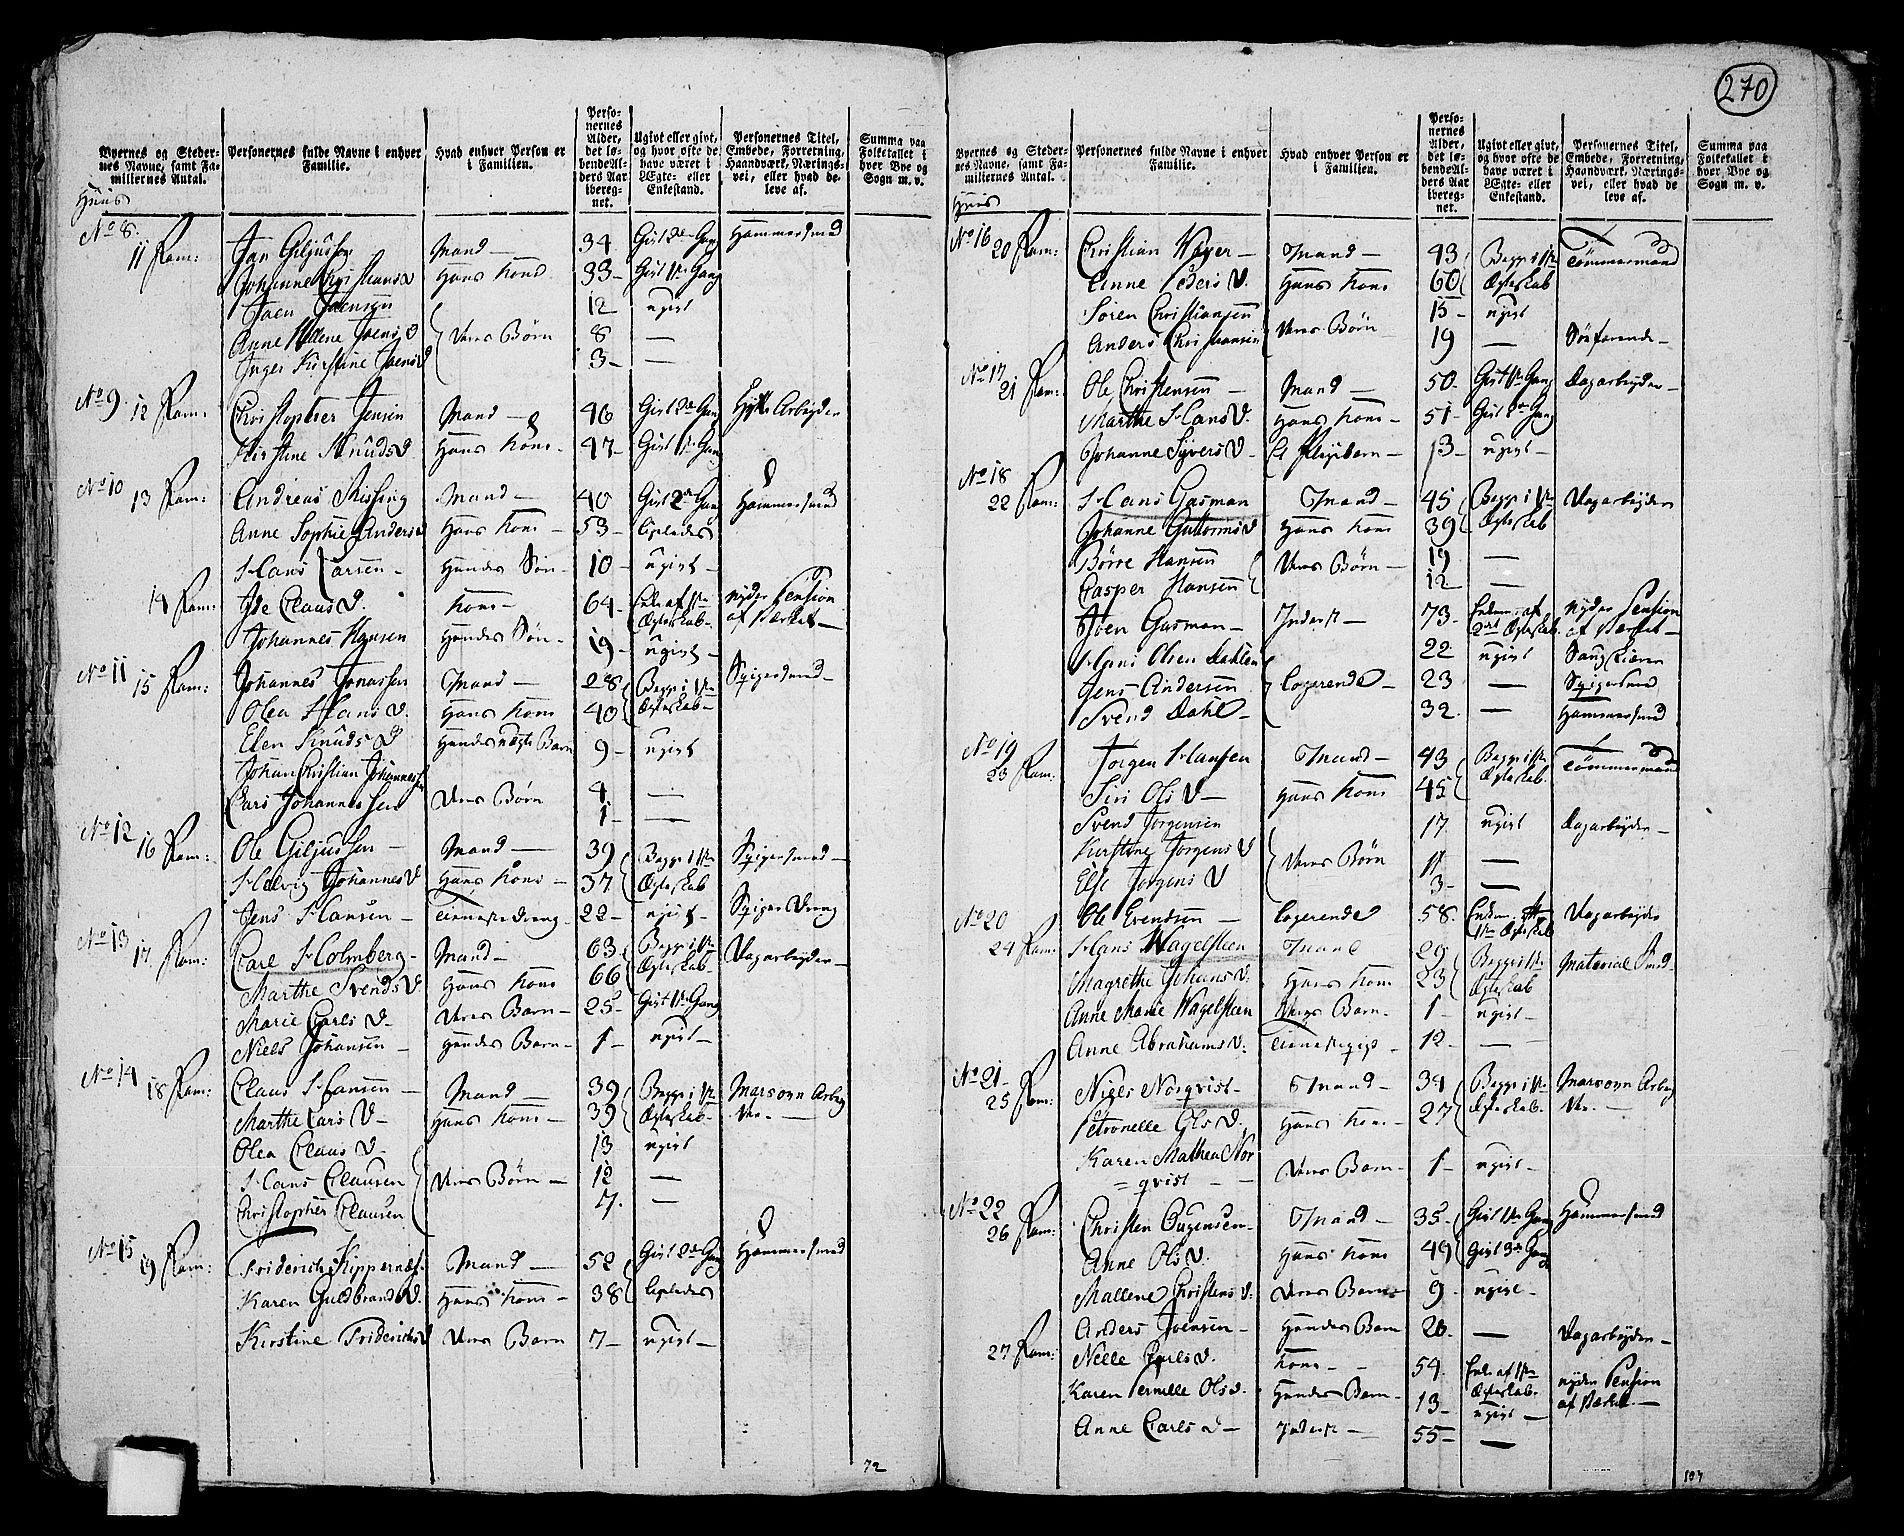 270
Byernes og Stedernes Navne, samt Familiernes Antal.
Personernes fulde Navne i enhver Familie.
Hvad enhver Person er i Familien.
Personernes Alder, det løbende Alders Aar iberegnet.
Ugivt eller givt, og hvor ofte de have været i Ægte- eller Enkestand.
Personernes Titel, Embede, Forretning, Haandværk, Næringsvei, eller hvad de leve af.
Summa paa Folketallet i hver Bye og Sogn m. v.
Huus
No 8. 11 Fam: Jan Giljussen Mand — 34 Givt 2de Gang Hammersmed
Johanne Christians D Hans Kone 33 — Givt 1te Gang
Joen Joensøn 12 ugivt
Anne Helene Joens D Deres Børn 8 —
Inger Kirstine Joens D 3 — —
No 9. 12 Fam: Christopher Jensen Mand — 46 Givt 2de Gang Hytte Arbeyder
Kirstine Knuds D Hans Kone 47 — Givt 1te Gang
No 10 13 Fam: Andreas Missing Mand — 40 Givt 2de Gang Hammersmed
Anne Sophie Anders D Hans Kone — 53 — ligeledes
Hans Larsen — Hendes Søn — 10 — ugivt —
14 Fam: Ide Claus D. Kone — 64 — Enke af 1te Ægteskab — nyder Pension af Værket —
Johannes Hansen Hendes Søn — 19 — ugivt —
No 11 15 Fam: Johannes Jonassen Mand — 28 Begge i 1te Ægteskab — Spigersmed —
Olea Hans D. Hans Kone 40
Elen Knuds D Hendes uægte Barn 9 — ugivt
Johan Christian Johannessen 4 —
Lars Johannessen Deres Børn 1 — —
No 12 16 Fam: Ole Giljussen — Mand — 39 Begge i 1te Ægteskab Spigersmed —
Helvig Johannes D Hans Kone — 37
Jens Hansen — Tienestedreng — 22 — ugivt — Spiger Dreng
No 13 17 Fam: Carl Holmberg — Mand — 63 Begge i 1te Ægteskab — Dagarbeyder —
Marthe Svends D Hans Kone 66
Marie Carls D — Deres Barn — 25 — Givt 1te Gang
Niels Johansen — Hendes Barn — 1 — ugivt —
No 14 18 Fam: Claus Hansen — Mand 39 Begge i 1te Ægteskab — Marsovn Arbeyder —
Marthe Lars D — Hans Kone — 39
Olea Claus D — 13 ugivt
Hans Clausen Deres Børn — 12 —
Christopher Clausen 7. —
No 15 19 Fam: Friderich Kippernæs. Mand — 52 Givt 2de Gang Hammersmed
Karen Guldbrands D. Hans Kone — 38 ligeledes
Kirstine Friderichs D Deres Barn 7 — ugivt —
72
Byernes og Stedernes Navne, samt Familiernes Antal.
Personernes fulde Navne i enhver Familie.
Hvad enhver Person er i Familien.
Personernes Alder, det løbende Alders Aar iberegnet.
Ugivt eller givt, og hvor ofte de have været i Ægte- eller Enkestand.
Personernes Titel, Embede, Forretning, Haandværk, Næringsvei, eller hvad de leve af.
Summa paa Folketallet i hver Bye og Sogn m. v.
Huus
No 16 20 Fam: Christian Wayer — Mand — 43 Begge i 1te Ægteskab Tømmermand
Anne Peders D. Hans Kone 60
Søren Christiansen 15 — ugivt
Anders Christiansen Deres Børn 19 — Søefarende —
No 17 21 Fam: Ole Christensen — Mand — 50. Givt 1te Gang Dagarbeyder —
Marthe Hans D. Hans Kone — 51 — Givt 2de Gang
Johanne Syvers D — Et Pleyebarn — 13 — ugivt —
No 18 22 Fam: Hans Gasman Mand — 45 Begge i 1te Ægteskab Dagarbeyder
Johanne Guttorms D Hans Kone 39
Børre Hansen Deres Børn — 19 —
Casper Hansen 12 —
Joen Gasman — Inderst — 73 — Enkem. af 2det Ægteskab nyder Pension af Værket —
Hans Olsen Dahlen 22 ugivt Saugskierer
Jens Andersen Logerende — 23 — Spigersmed
Svend Dahl — 32. — Hammersmed
No 19 23 Fam: Jørgen Hansen Mand — 43 Begge i 1te Ægteskab. Tømmermand
Siri Ols D — Hans Kone 45
Svend Jørgensen 17. ugivt Dagarbeyder —
Kirstine Jørgens D Deres Børn 11 —
Else Jørgens D 3 — —
No 20 Ole Evendsen — Logerende 58. Enkem. af 1te Ægteskab Dagarbeyder
24 Fam: Hans Wagelsteen Mand 29 Begge i 1te Ægteskab Material Smed —
Magrethe Johans D. Hans Kone 23
Anne Marie Wagelsteen Deres Barn — 1 — ugivt —
Anne Abrahams D. Tienestepige — 12 — —
No 21 — 25 Fam: Niels Norqvist — Mand — 34 Begge i 1te Ægteskab — Marsovn Arbeyder —
Petronelle Ols D. Hans Kone — 27
Karen Mathea Nor
= qvist — Deres Barn — 1 — ugivt —
No 22 26 Fam: Christen Bugensen — Mand — 35 — Givt 1te Gang Hammersmed
Anne Ols D. Hans Kone 49 Givt 3de Gang
Mallene Christens D. Deres Barn 9 — ugivt —
Anders Joensen — Hendes Barn 20. — Dagarbeyder —
27 Fam: Nelle Carls D. Kone — 54. Enke af 1te Ægteskab. nyder Pension af Værket —
Karen Pernille Ols D. Hendes Barn — 13 — ugivt —
Anne Carls D — Inderst — 55 — —
107